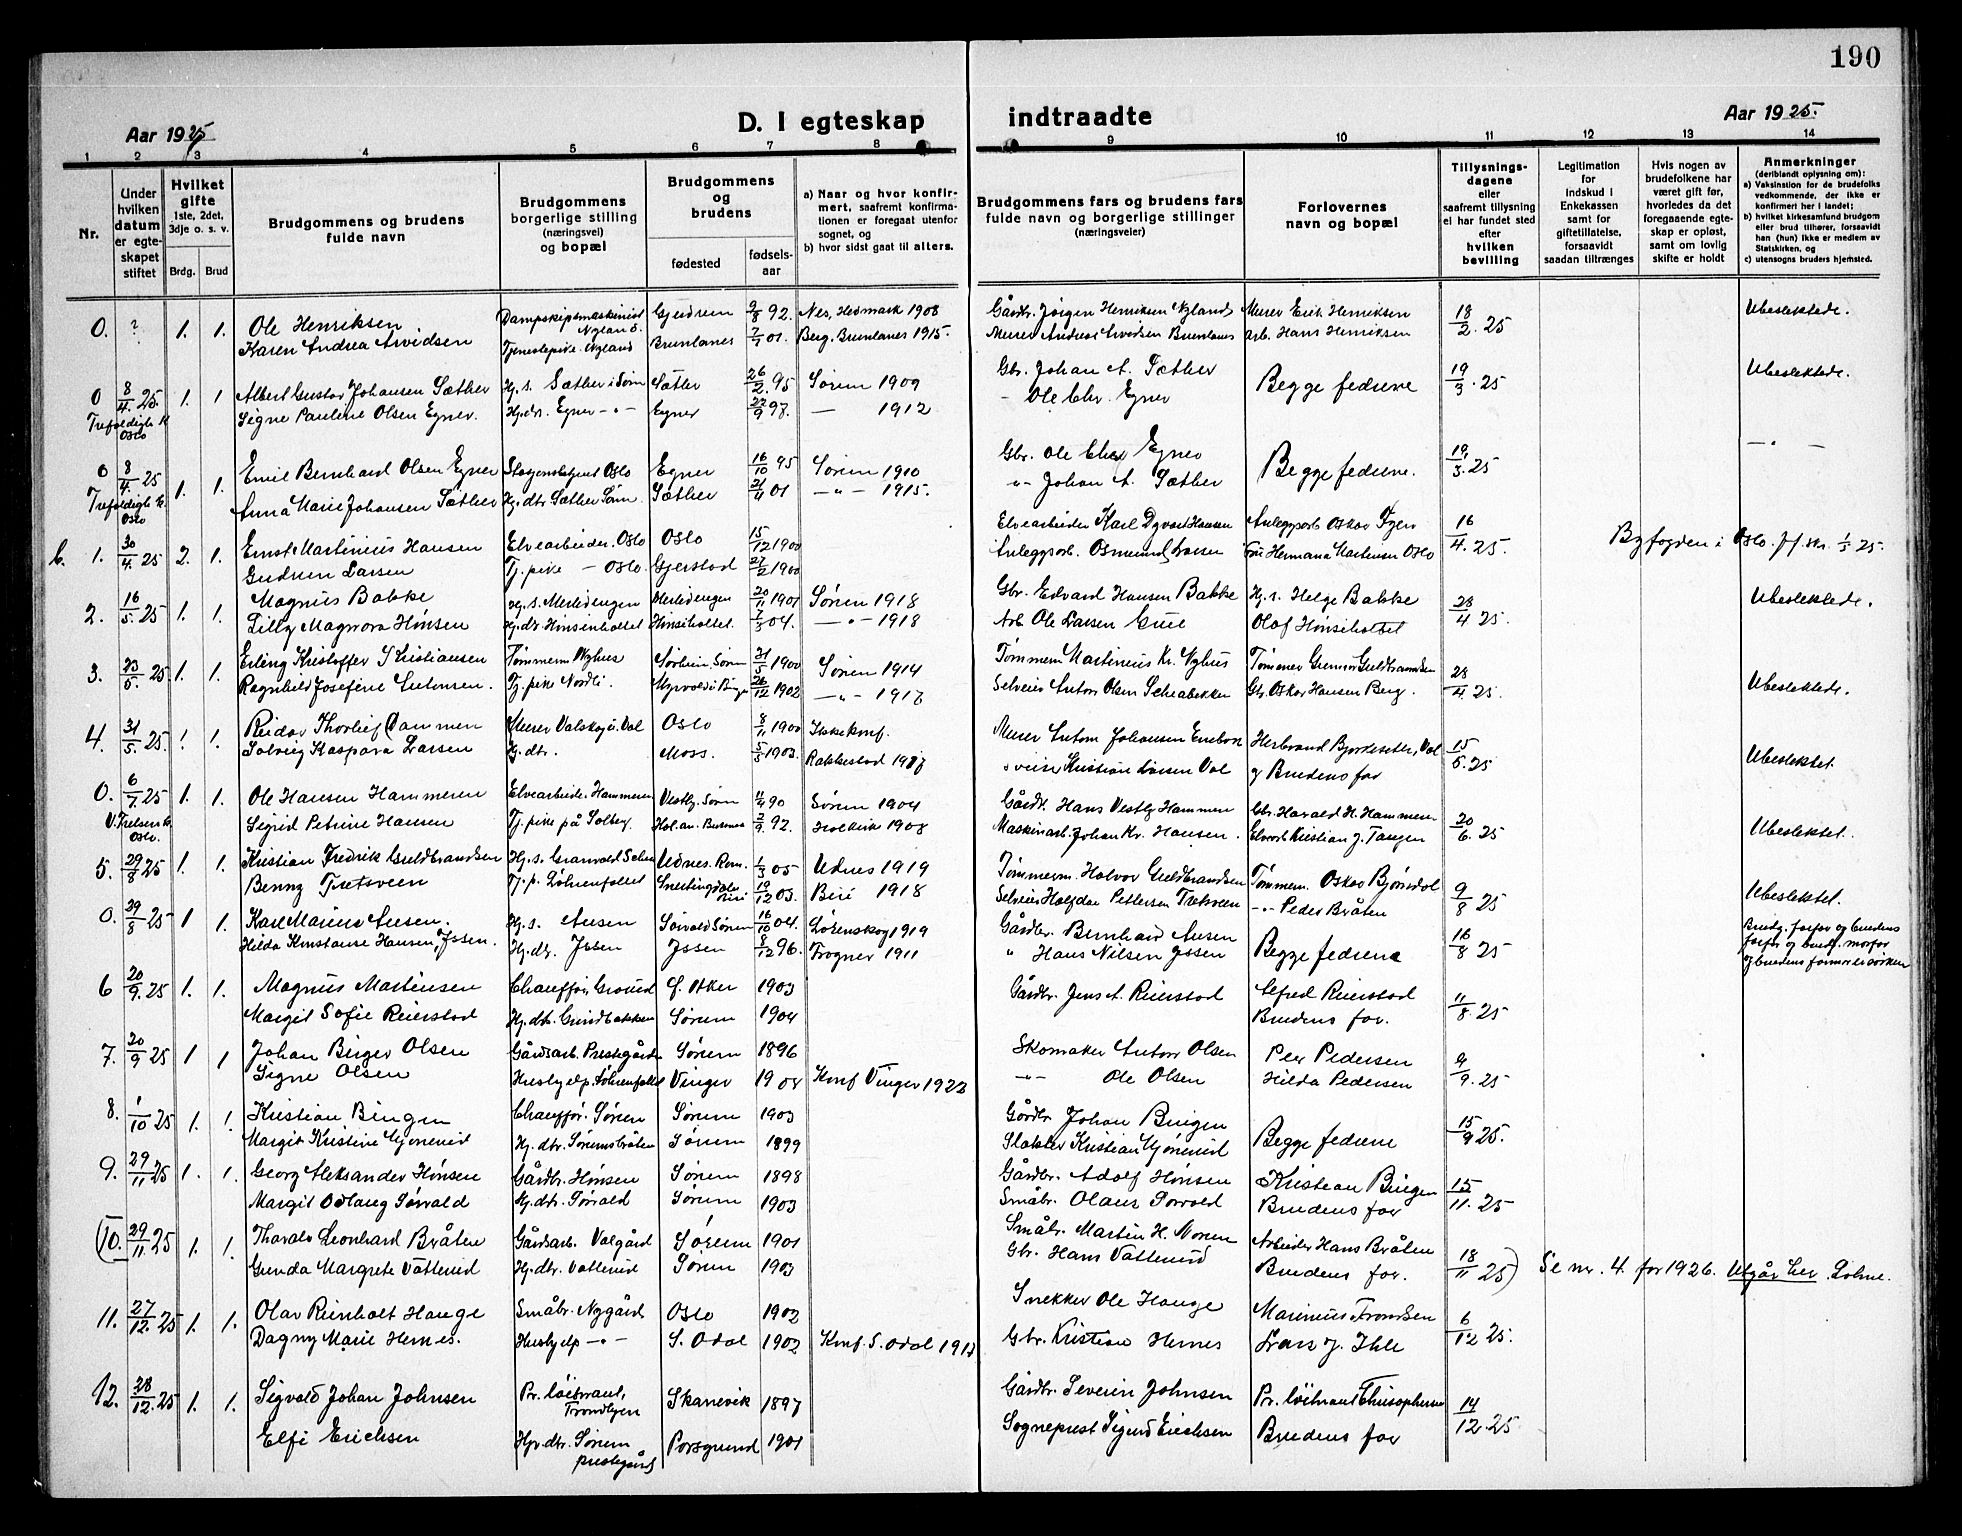 190
Aar 1925
D. I egteskap
indtraadte
Aar 1925.
1 2 3 4 5 6 7 8
9 10 11 12 13 14
Nr.
Under hvilken datum er egteskapet stiftet
Hvilket gifte 1ste, 2det, 3dje o. s. v.
Brdg. Brud
Brudgommens og brudens fulde navn
Brudgommens borgerlige stilling (næringsvei) og bopæl
Brudgommens og brudens
fødested
fødselsaar
a) Naar og hvor konfirmert, saafremt konfirmationen er foregaat utenfor sognet, og
b) hvor sidst gaat til alters.
Brudgommens fars og brudens fars fulde navn og borgerlige stillinger (næringsveier)
Forlovernes navn og bopæl
Tillysningsdagene eller saafremt tillysning ei har fundet sted efter hvilken bevilling
Legitimation for indskud i Enkekassen samt for giftetillatelse, forsaavidt saadan tiltrænges
Hvis nogen av brudefolkene har været gift før, hvorledes da det foregaaende egteskap er opløst, samt om lovlig skifte er holdt
Anmerkninger (deriblandt oplysning om):
a) Vaksinstion for de brudefolks vedkommende, der ikke er konfirmert her i landet;
b) hvilket kirkesamfund brudgom eller brud tilhører, forsaavidt han (hun) ikke er medlem av Statskirken, og
c) utensogns bruders hjemsted.
0. ? 1. 1. Ole Henriksen Dampskipsmaskinist Nyland 9/8 92. Nes, Hedmark 1908 Gårdbr. Jørgen Henriksen Nyland Murer Erik Henriksen 18/2 25 Ubeslektede.
Karen Andrea Arvidsen Tjenestepike Nyland Brunlanes 7/1 01. Berg, Brunlanes 1915. Murer Andreas Arvidsen Brunlanes arb. Hans Henriksen
0 8/4 25. 1. 1 Albert Gustav Johansen Sæther Hj. s. Sæther i Sørum Sæther 26/2 95 Sørum 1909 Gbr. Johan A. Sæther Begge fedrene 19/3 25 Ubeslektede.
Trefoldigh. k Oslo Signe Pauline Olsen Egner. Hj. dtr. Egner -"- Egner 22/9 97. — 1912 - Ole Chr. Egner
0 8/4 25 1. 1. Emil Bernhard Olsen Egner Oslo Egner 16/10 95 Sørum 1910 Gbr. Ole Chr. Egner Begge fedrene. 19/3 25 — " —
Trefoldigh. k. Oslo Anna Marie Johansen Sæther Hj. dtr. Sæther Sørum Sæther 21/4 01 -"- 1915. " Johan A. Sæther
b. 1. 30/4 25 2. 1. Ernst Martinius Hansen Elvearbeider. Oslo Oslo 15/12 1900 Elvearbeider Karl Hansen Anleggsarb. Oskar 16/4. 25. Byfogden i Oslo. 1/5 25.
Gudrun Larsen Tj. pike – Oslo. Gjerstad 21/2 1900 Anleggsarb. Osmund Larsen Fru Hermana Martinsen Oslo
2. 16/5 25 1. 1. Magnus Bakke Hj. s. Merliengen Merliengen 20/11 1901 Sørum 1918 Gbr. Edvard Hansen Bakke Hj. s. Helge Bakke 28/4 25. Ubeslektede.
Lilly Magnora Hønsen Hj. dtr. Hønsenholtet Hønsiholtet. 7/3 04. -"- 1918 Arb. Ole Larsen Olaf Hønsiholtet
3. 23/5. 25 1. 1. Erling Kristoffer Kristiansen Tømmerm. Nyhus Sørlein. Sørum 31/5 1900 Sørum 1914 Tømmerm. Martinius Kr. Nyhus Tømmer Gunnar Guldbrandsen 28/4 25. Ubeslektede.
Ragnhild Josefine Antonsen. Tj. pike Nordli. Myrvold i Binge 26/12 1902 -"- 1917 Selveier Anton Olsen Gbr. Oskar Hansen Berg.
4. 31/5. 25. 1. 1. Reidar Thorleif Dammen Murer Valskog i Val Oslo 8/11 1900 Ikke konf. Murer Anton Johansen Enebak Herbrand Bjerdeseter, Val 15/5. 25 Ubeslektet.
Solveig Kaspara Larsen Hj. dtr. Moss. 5/3 1903. Rakkestad 1917 Kristian Larsen Val og Brudens far
0. 6/7. 25 1. 1. Ole Hansen Hammeren Elvearbeider. Hammeren Vestby. Sørum 11/4 90 Sørum 1904 Gårdbr. Hans Vestby Hammeren Gbr. Harald H. Hammeren 20/6. 25 Ubeslektet.
V. Frelsers k. Oslo. Sigrid Petrine Hansen Tj. pike på Solberg. Hol. an. Buskerud 2/9. 92. Hvelvik 1908 Maskinarb. Johan Kr. Hansen. Elvearb. Kristian J. Tangen
5. 29/8 25 1. 1. Kristian Fredrik Guldbrandsen Hj. s. Granvold Udnes. Rom. 1/3 05 Udnes 1919 Tømmerm. Halvor Guldbrandsen Tømmerm. Oskar Bjørndal 9/8 25 Ubeslektet.
Benny Tretsveen Tj. p. Løhrenfallet Snertingdalen Biri 19/12 03. Biri 1918 Selveier Halfdan Pettersen Tretsveen -"- Peder Bråten
0. 29/8 25 1 1. Karl Marius Ausen. Hj. s. Ausen Sørvald Sørum 16/10 04. Lørenskog 1919 Gårdbr. Bernhard Ausen Begge fedrene 16/8 25 Brudg. farfar og brudens farfar og brudg. morfar og brudens
Hilda Konstanse Hansen, Jssen. Hj. dtr. Jssen Jssen 8/12 96. Frogner 1911 " Hans Nilsen Jssen
6 20/9. 25 1. 1. Magnus Martinsen Chauffør, Grorud Ø. Aker 1903 Alfred Reierstad 11/8. 25
Margit Sofie Reierstad Hj. dtr. Grindbakken Sørum 1904 Gårdbr. Jens A. Reierstad Brudens far.
7. 20/9 25 1 1 Johan Birger Olsen Gårdsarb. Prestegården Sørum 1896 Skomaker Anton Olsen Peer Pedersen 9/9. 25
Signe Olsen Hushjelp. Løhrenfallet Vinger 1908 Konf Vinger 1922 -"- Ole Olsen Hilda Pedersen
8. 1/10 25 1. 1. Kristian Bingen Chauffør. Sørum Sørum 1903 Gårdbr. Johan Bingen Begge fedrene 15/9 25.
Margit Kristine Gjønerud Hj. dtr. Sørumsbråten Sørum 1899 Slakter Kristian Gjønerud
9. 29/11 25 1. 1. Georg Aleksander Hønsen Gårdbr. Hønsen Sørum 1898 Gårdbr. Adolf Hønsen Kristian Bingen 15/11. 25
Margit Odlaug Sørvald Hj. dtr. Sørvald Sørum 1903 Småbr. Olaus Sørvald Brudens far
(10. 29/11. 25 1. 1. Thorolv Leonhard Bråten Gårdsarb. Valgård Sørum 1901 Småbr. Martin H. Noren Arbeider Hans Bråten 18/11 25) Se nr. 4. for 1926. Utgår her. Lohne.
Gunda Margrete Vatterud Hj. dtr. Vatterud Sørum 1903 Gbr. Hans Vatterud Brudens far.
11. 27/12. 25 1. 1. Olav Reinholt Hauge Småbr. Nygård Oslo 1902 Snekker Ole Hauge Marinius Frondsen 6/12 25.
Dagny Marie Hernes. Hushjelp -"- S. Odal 1902 Konf. S. Odal 1917 Gbr. Kristian Hernes Lars J. Ihle
12. 28/12. 25 1. 1. Sigvald Johan Johnsen Pr. løitnant, Trondhjem Skånevik 1897 Gårdbr. Severin Johnsen Pr. løitnant 14/12. 25
Elfi Erichsen Hjv. dtr. Sørum prestegård Porsgrund 1901 Sogneprest Sigurd Erichsen Brudens far